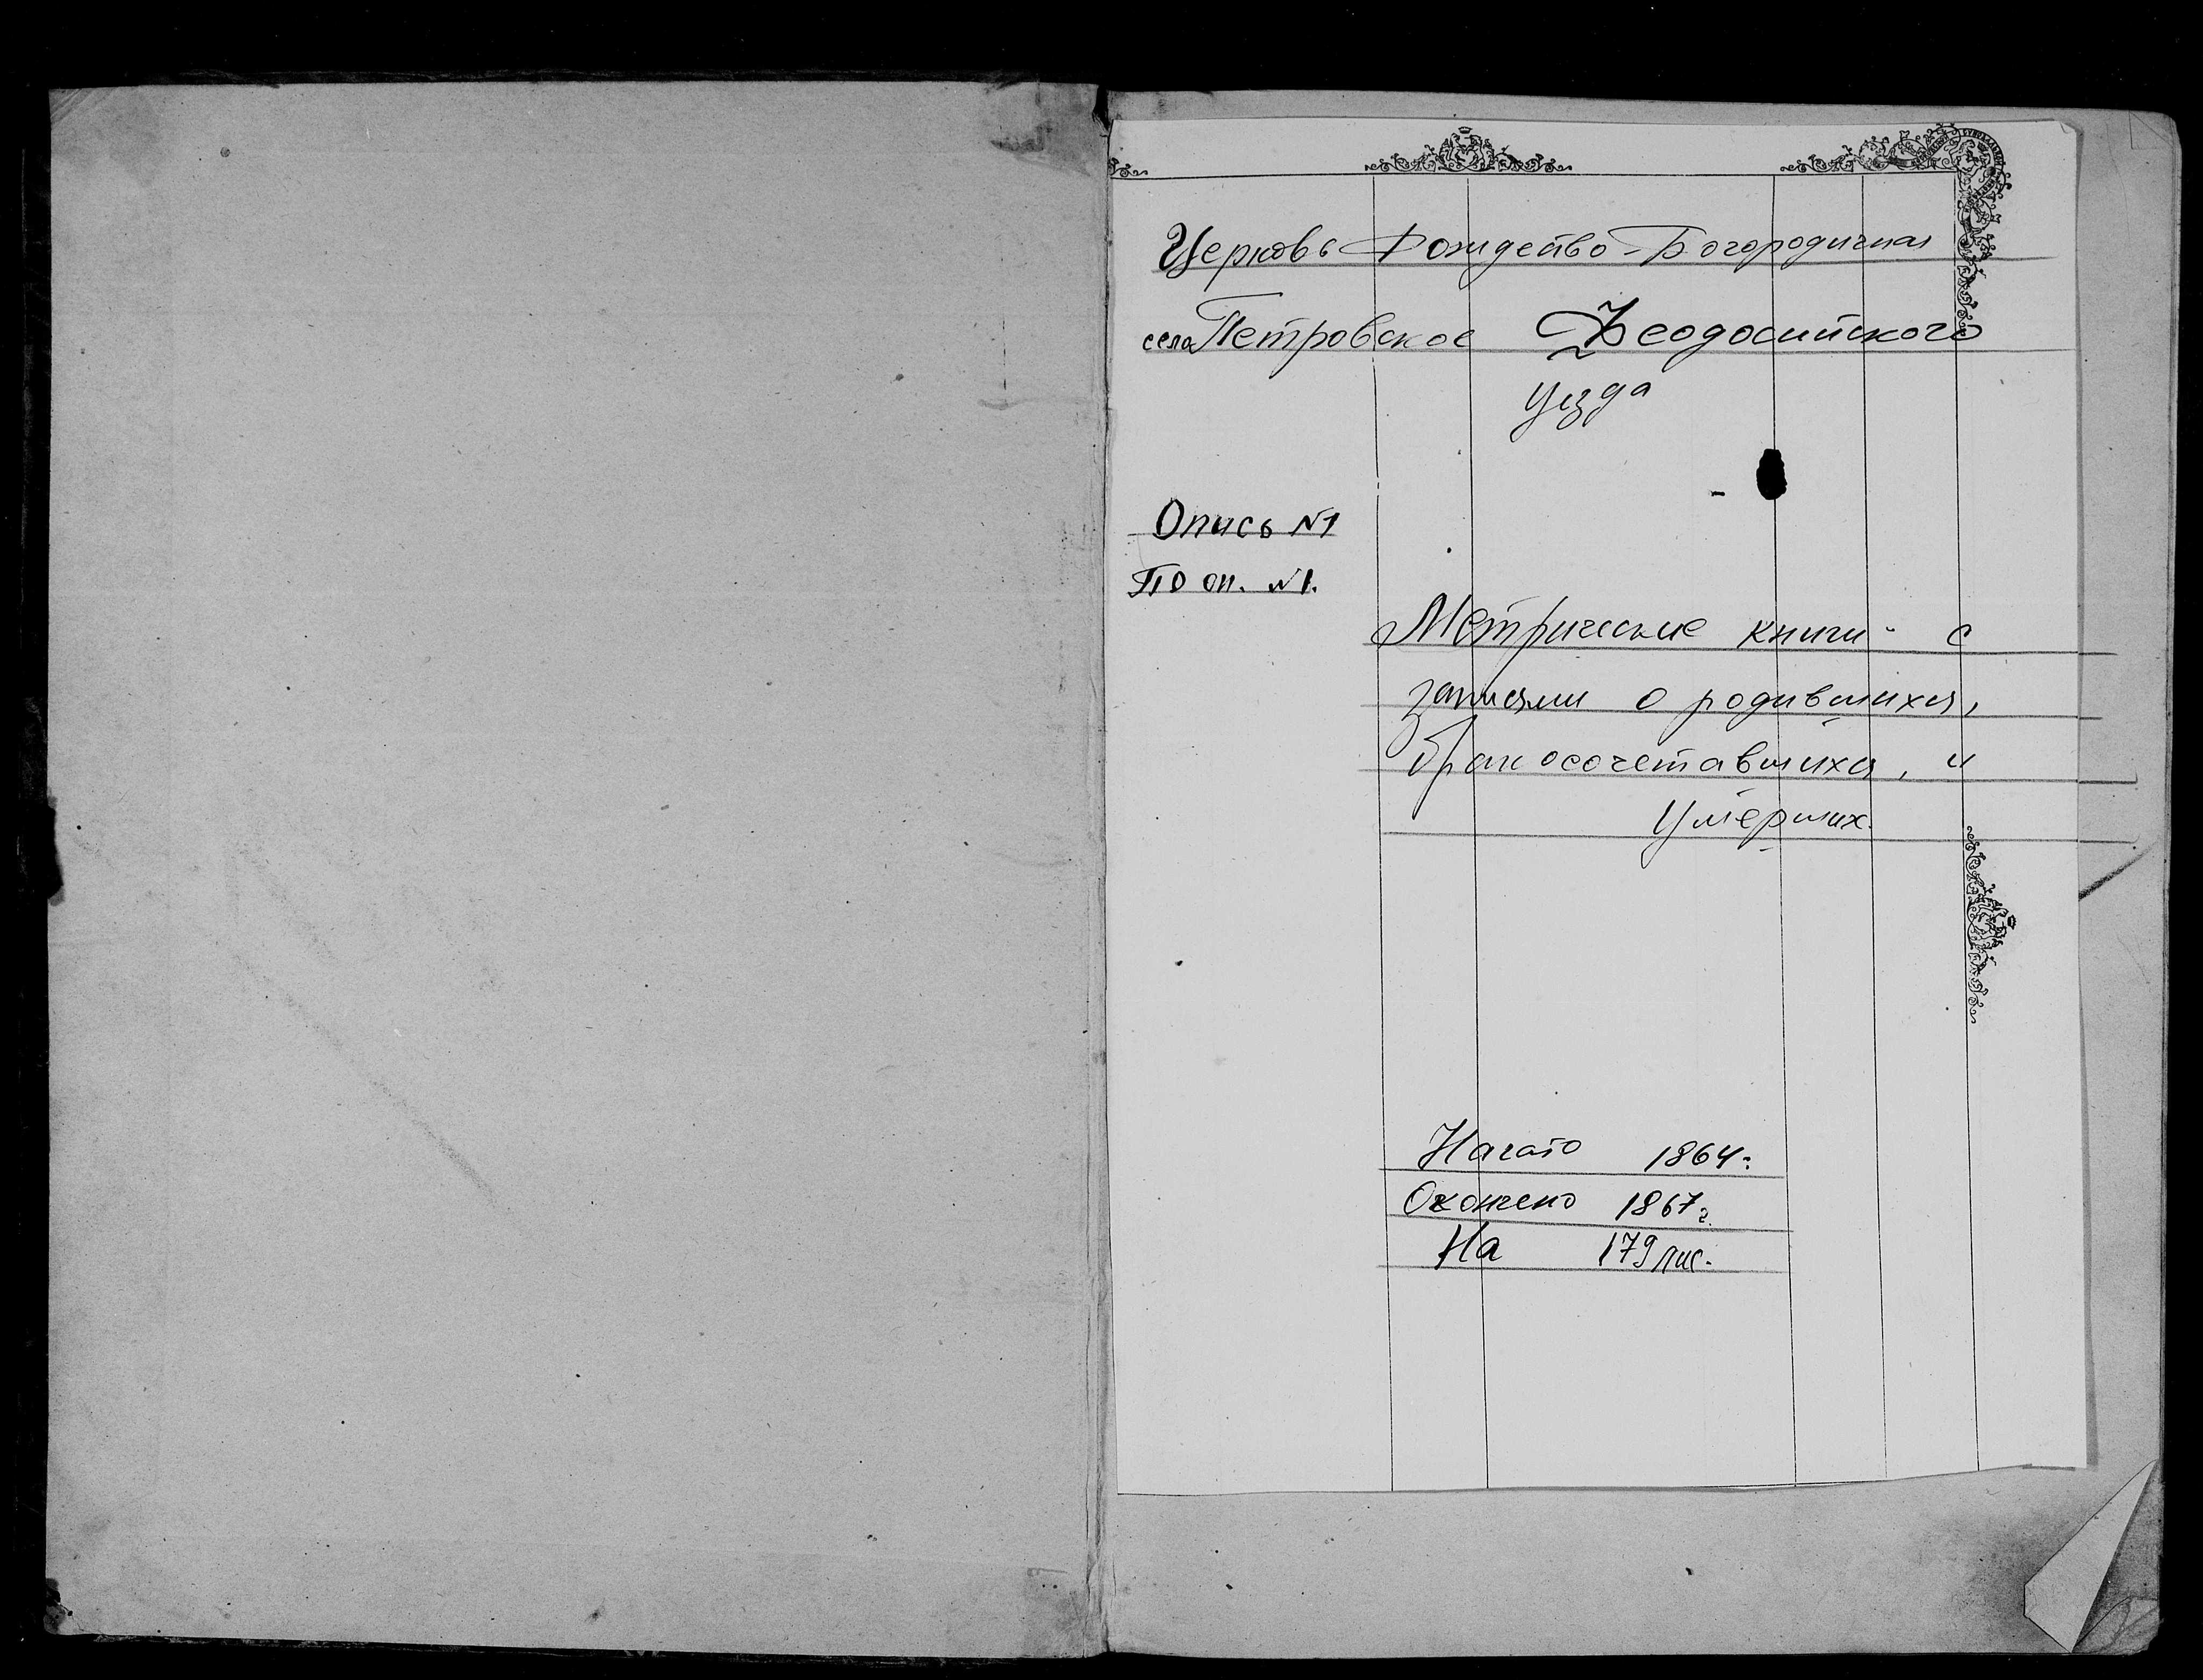 Церковь Рождество-Богородичная
села Петровское Феодосийского
уезда
Опись №1
По оп. №1.
Метрические книги с
записями о родившихся,
бракосочетавшихся, и
умерших.
Начато 1864г.
Окончено 1867г.
На 179 лис.